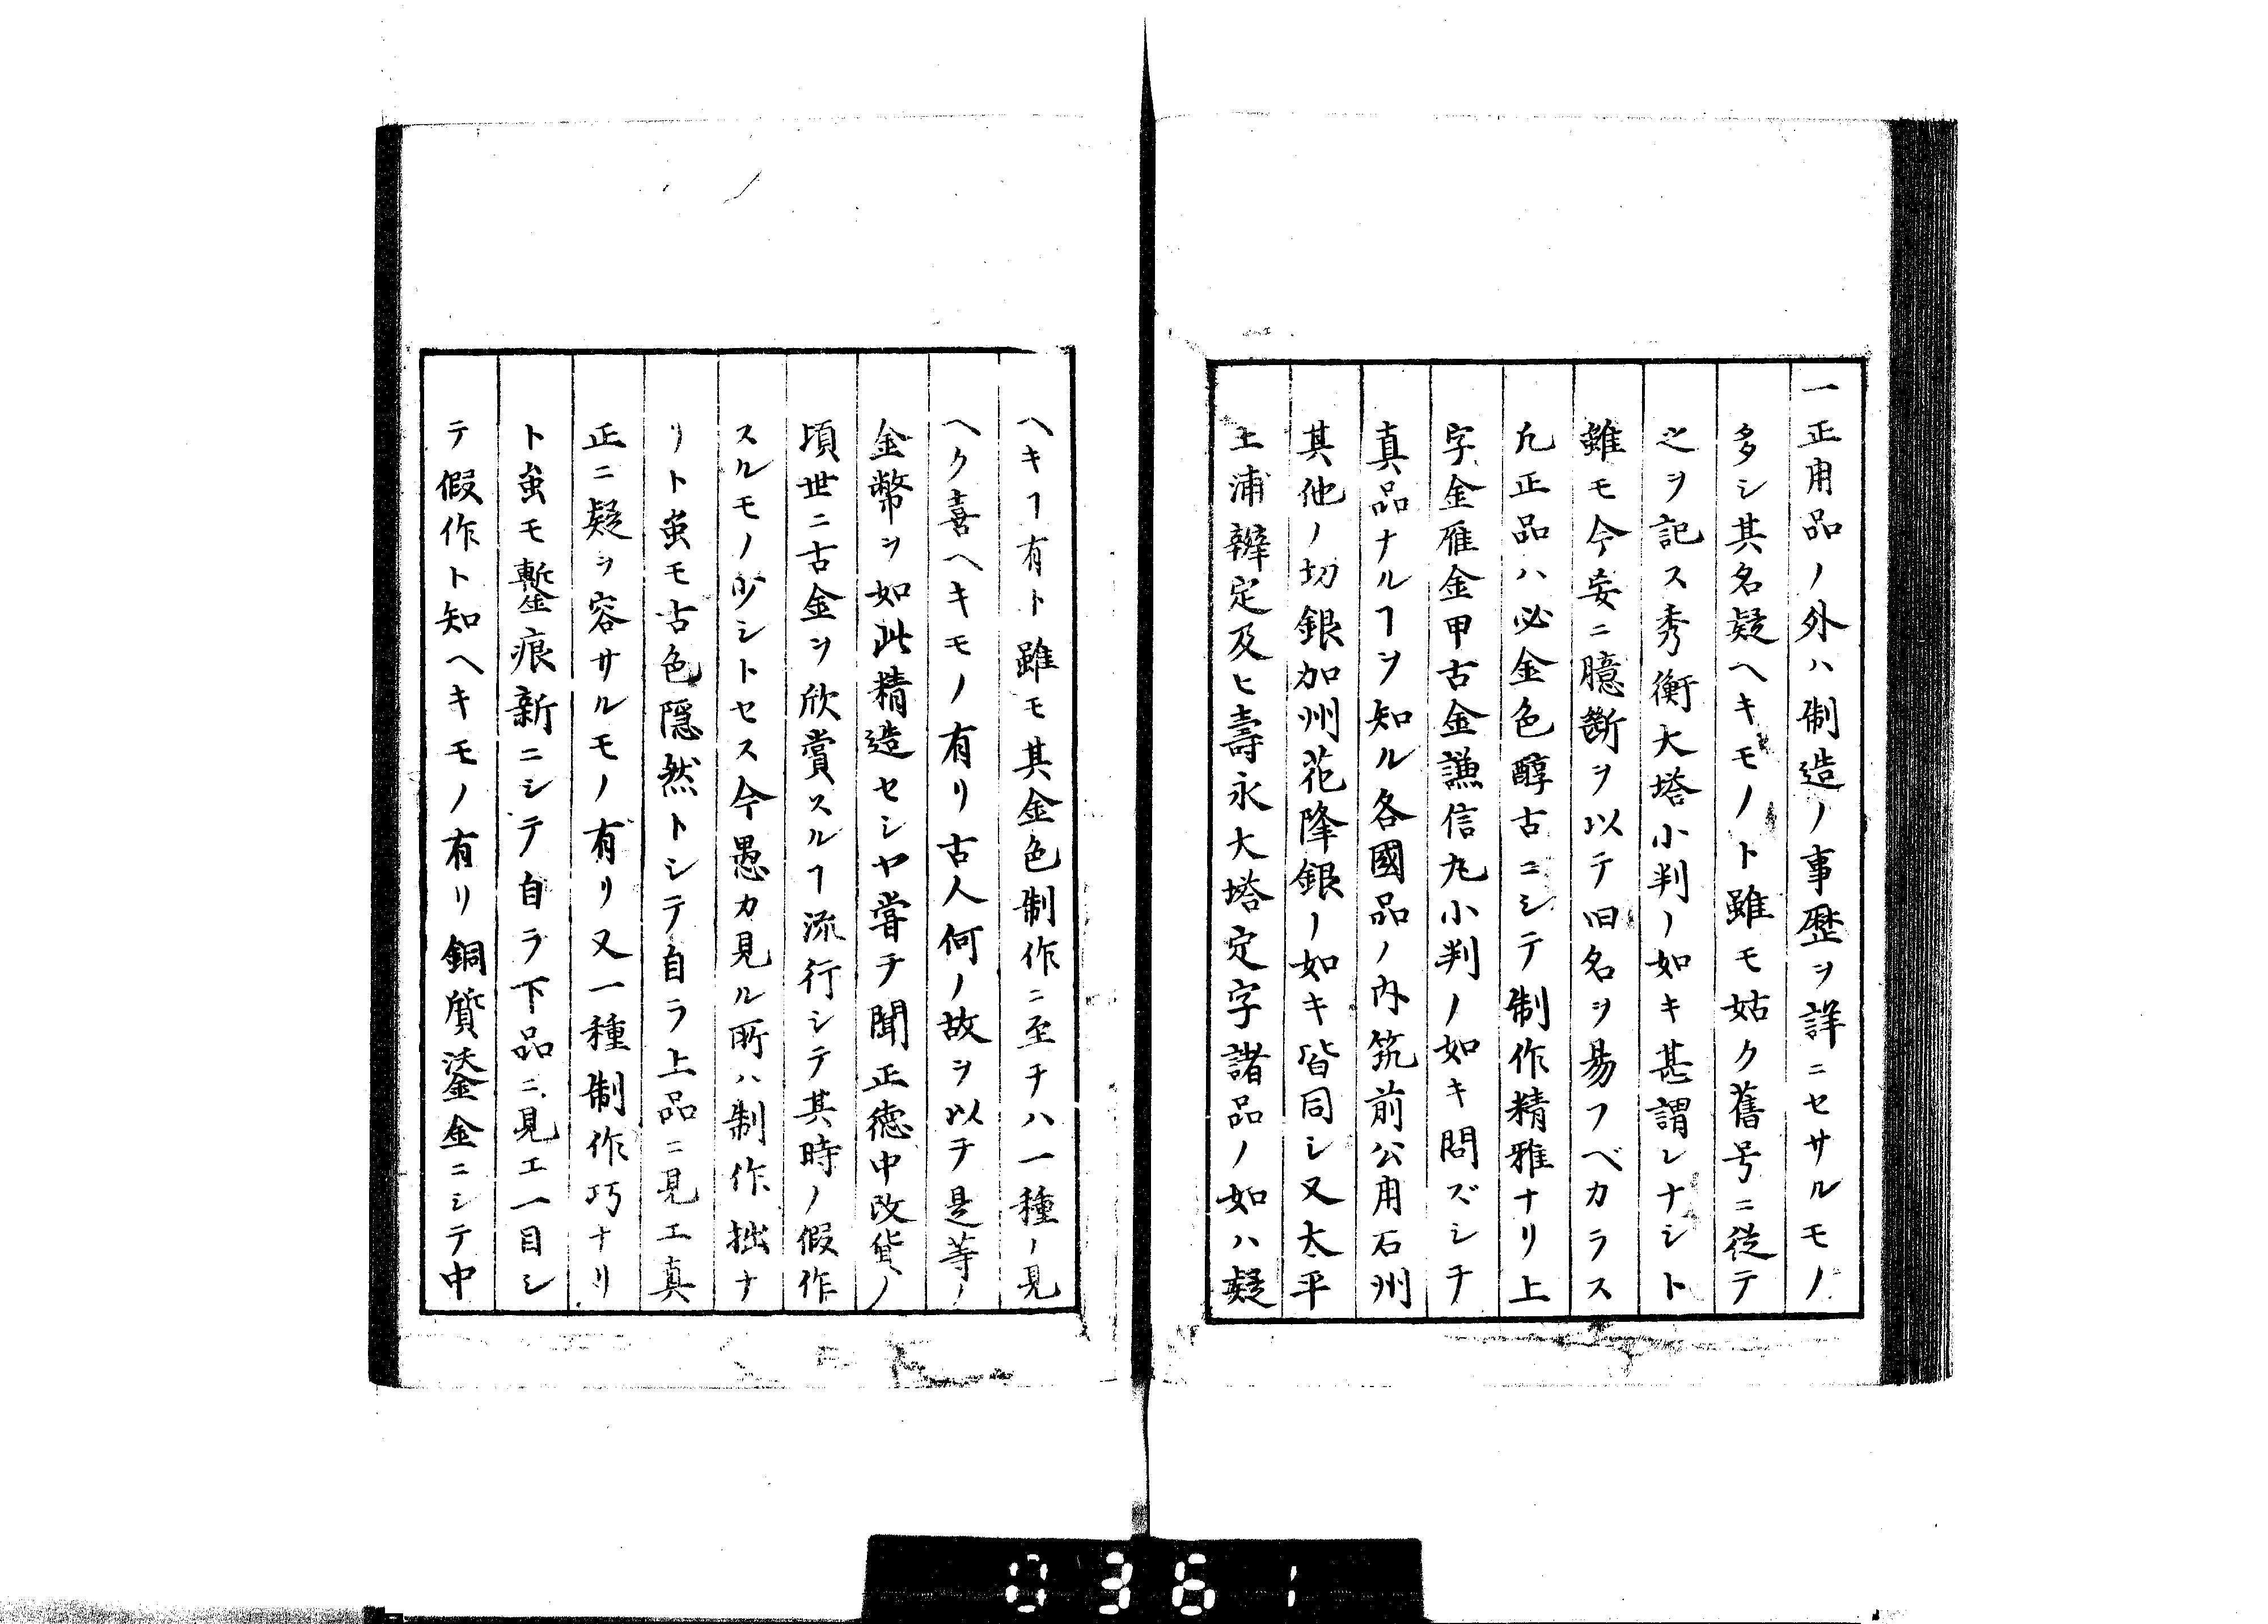 一正用品ノ外ハ制造ノ事歴ヲ詳ニセサルモノ
多シ其名疑ヘキモノト雖モ姑ク舊号ニ従テ
之ヲ記ス秀衡大塔小判ノ如キ甚謂レナシト
雖モ今妄ニ臆断ヲ以テ旧名ヲ易フベカラス
凡正品ハ必金色醇古ニシテ制作精雅ナリ上
字金雁金甲古金謙信丸小判ノ如キ問ズシテ
真品ナルヿヲ知ル各國品ノ内筑前公用石州
其他ノ切銀加州花降銀ノ如キ皆同シ又太平
土浦辨定及ヒ壽永大塔定字諸品ノ如ハ疑
ヘキヿ有ト雖モ其金色制作ニ至テハ一種ノ見
ヘク喜ヘキモノ有リ古人何ノ故ヲ以テ是等ノ
金幣ヲ如此精造セシヤ嘗テ聞正徳中改貨ノ
頃世ニ古金ヲ欣賞スルヿ流行シテ其時ノ假作
スルモノ少シトセス今愚カ見ル所ハ制作拙ナ
リト虽モ古色隠然トシテ自ラ上品ニ見エ真
正ニ疑ヲ容サルモノ有リ又一種制作巧ナリ
ト虽モ鏨痕新ニシテ自ラ下品ニ見エ一目シ
テ假作ト知ヘキモノ有リ銅質鎏金ニシテ中
0361